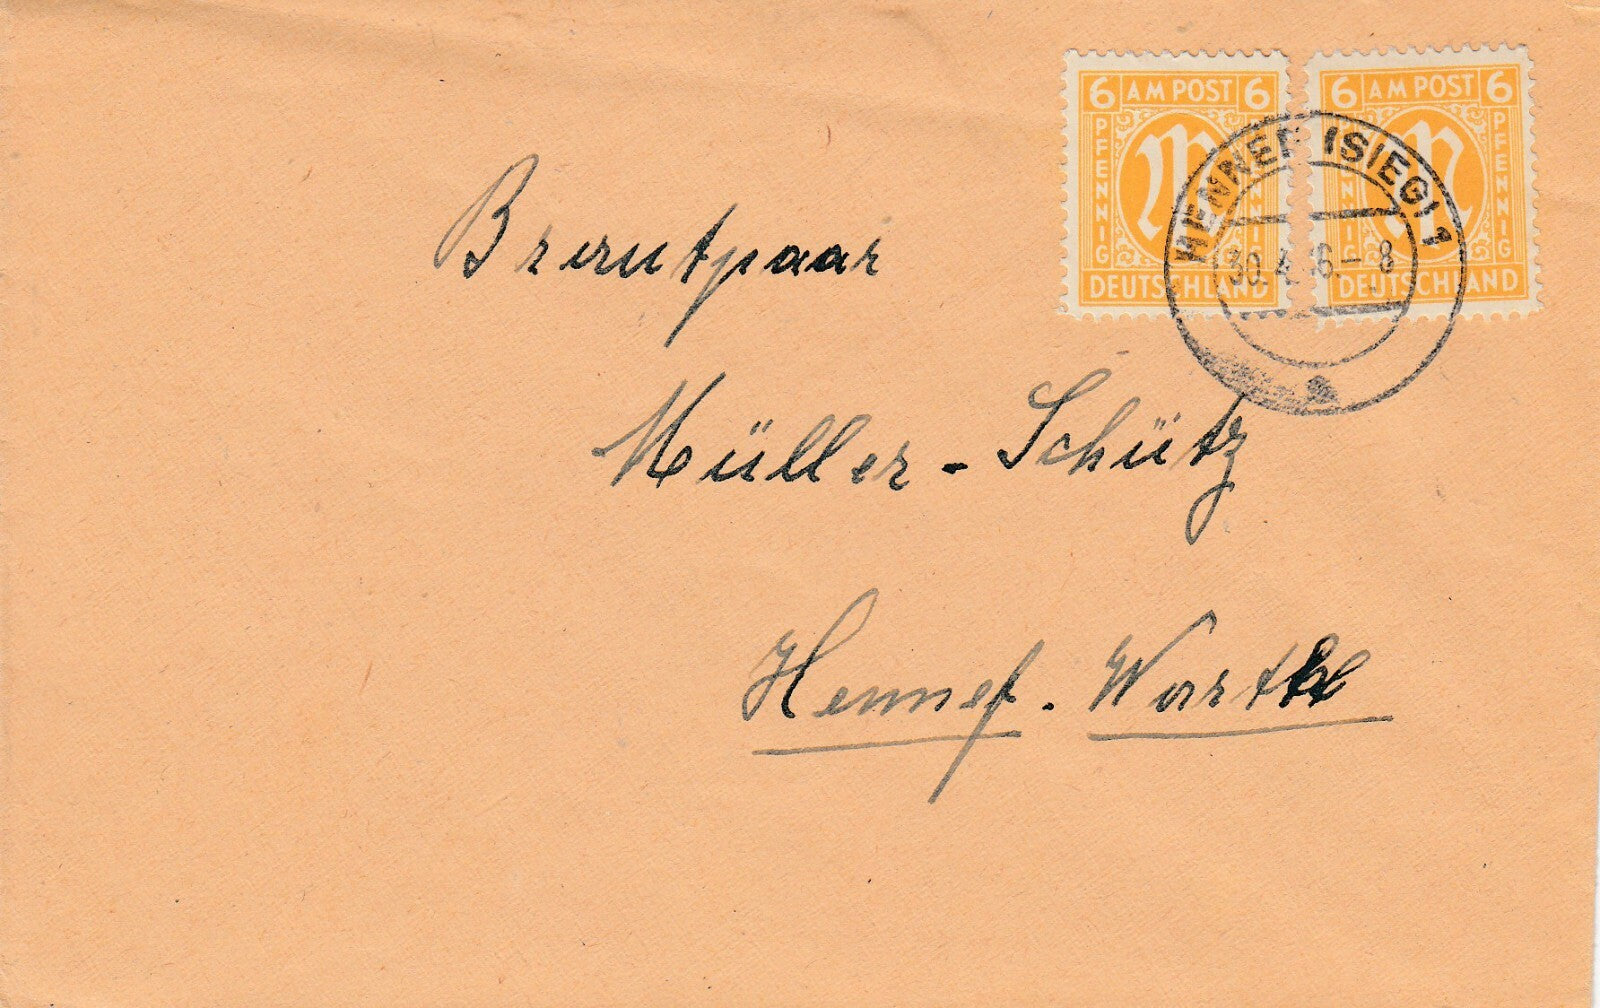 6 AM POST 6
PFENNIG
PFENNIG
DEUTSCHLAND
6 AM POST 6
PFENNIG
PFENNIG
DEUTSCHLAND
HENNEF (SIEG) 1
Brautpaar
Müller - Schütz
Hennef. Warth